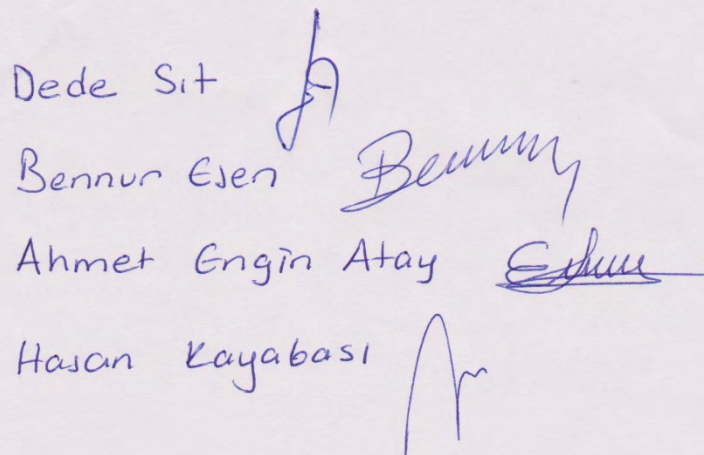 Dede Sıt
Bennur Esen
Ahmet Engin Atay
Hasan Kayabası